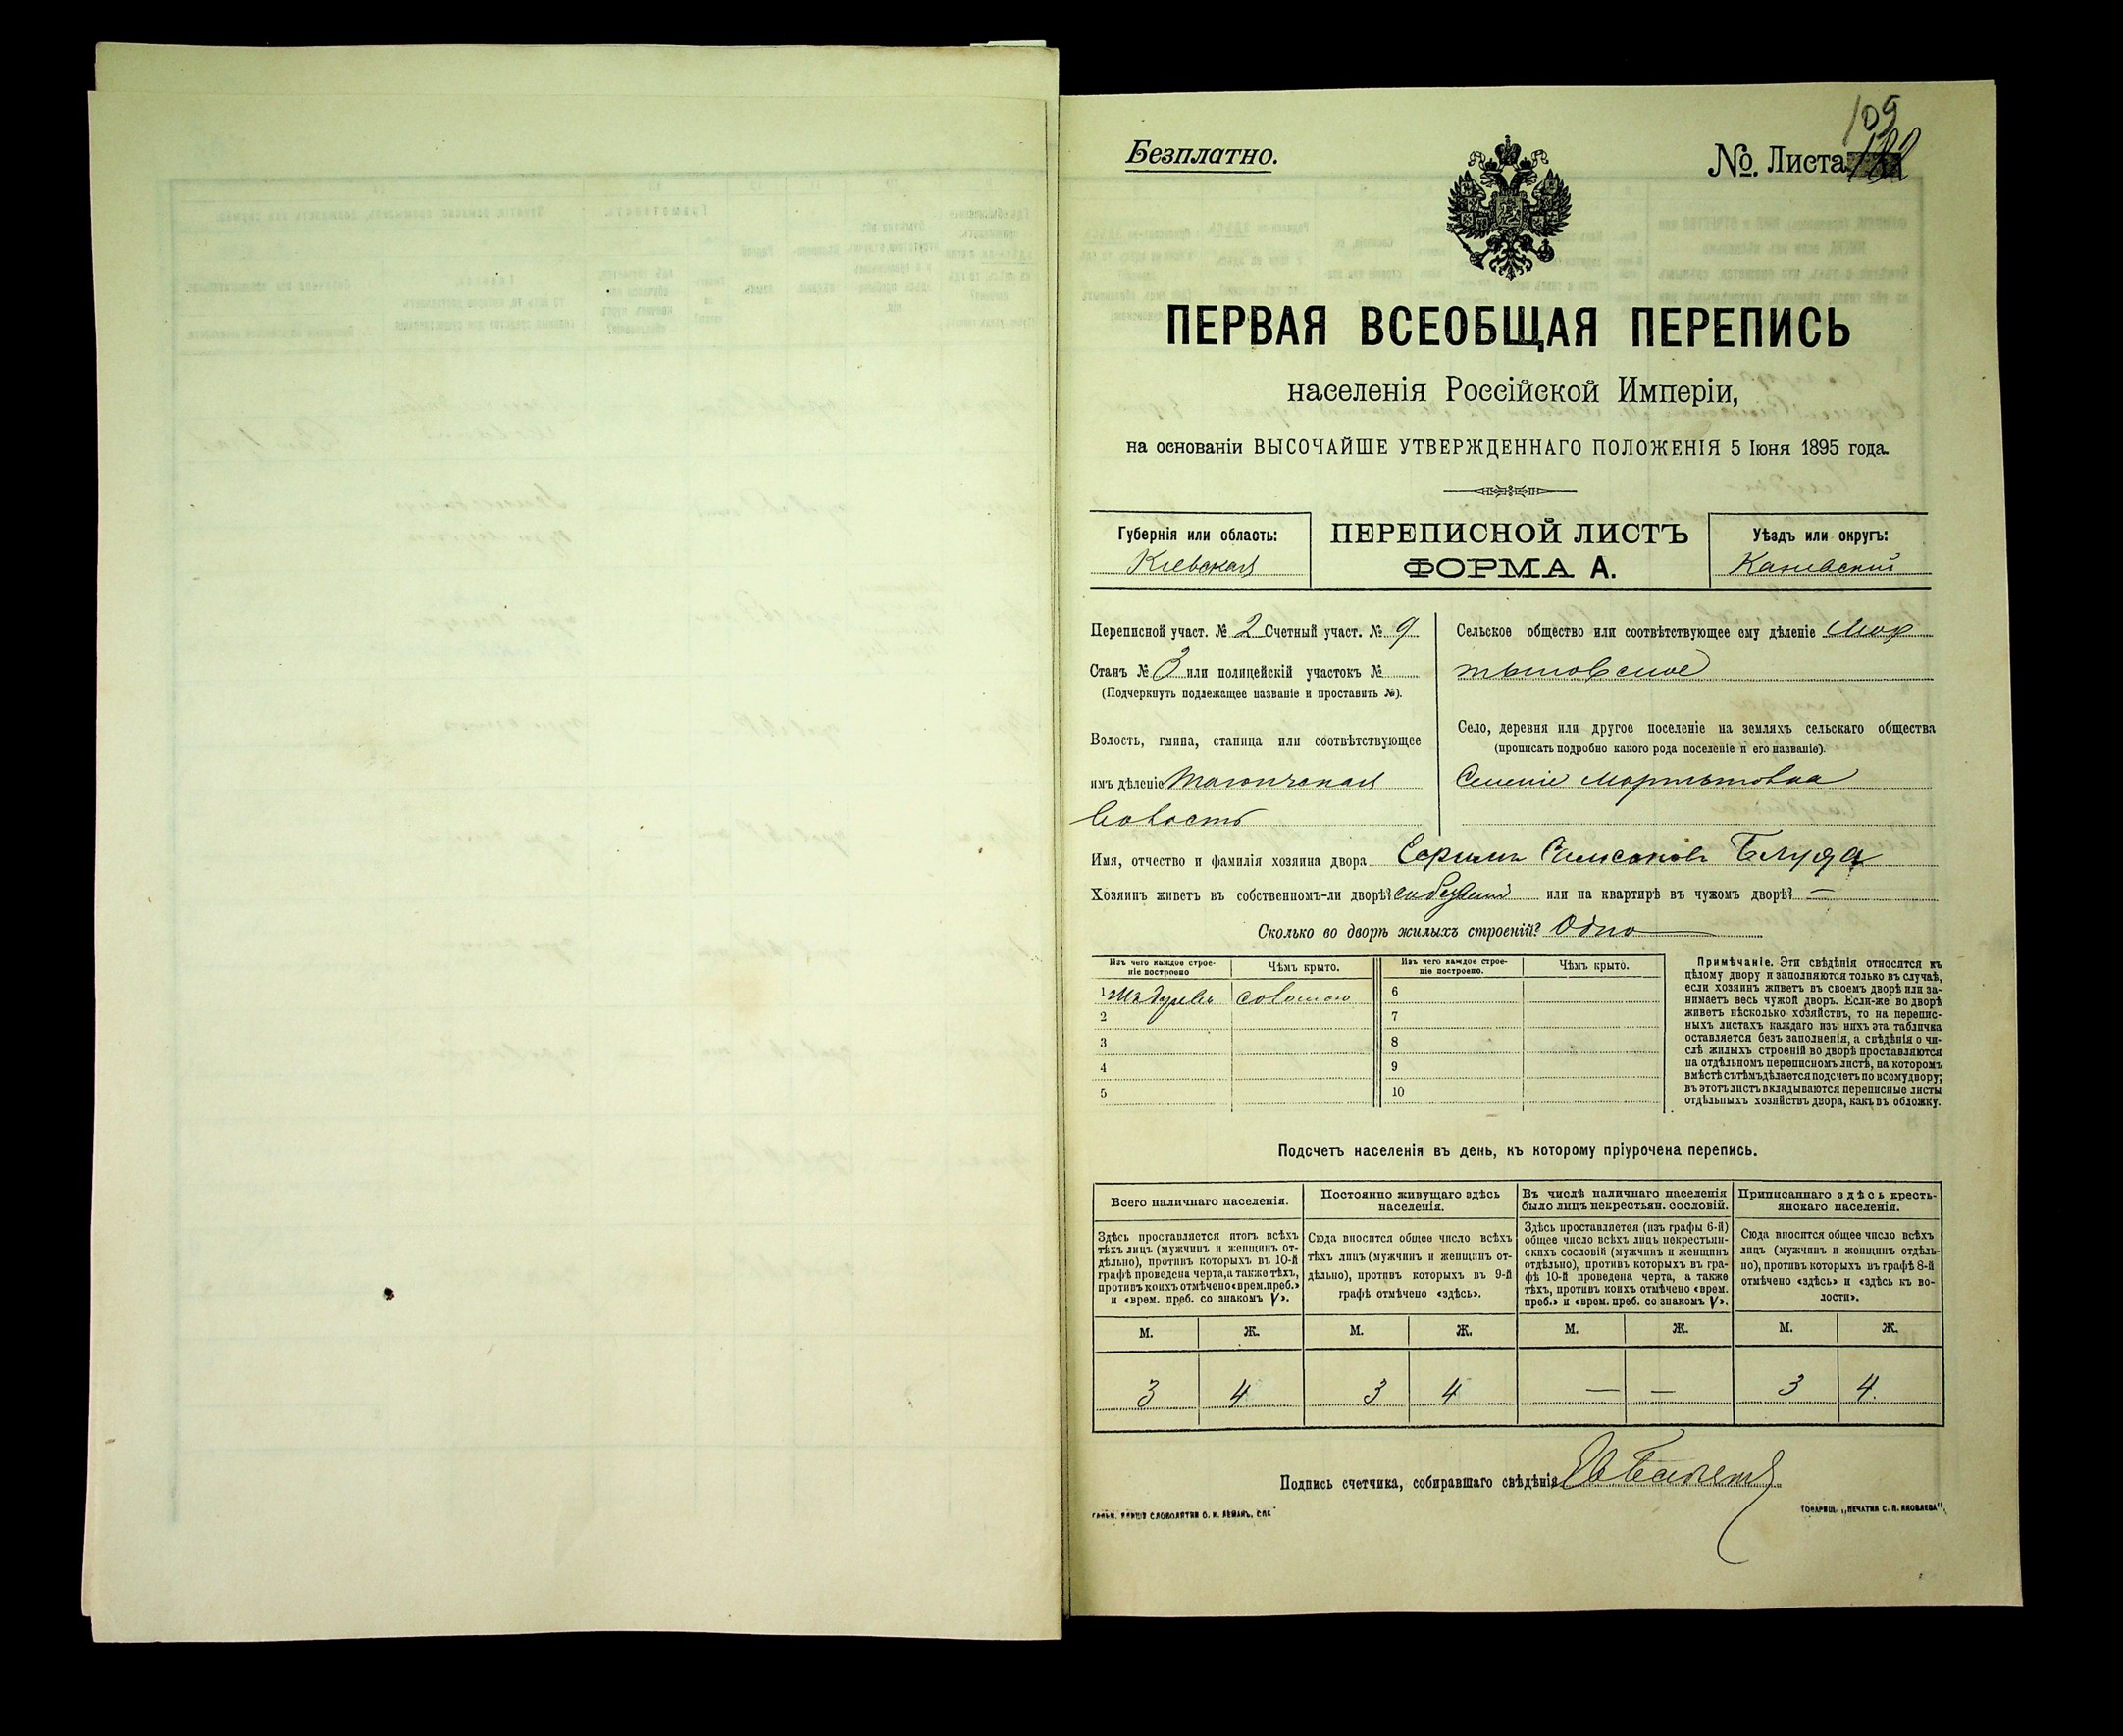 109
Безплатно.
№. Листа
ПЕРВАЯ ВСЕОБЩАЯ ПЕРЕПИСЬ
населенія Россійской Имперіи,
на основаніи ВЫСОЧАЙШЕ УТВЕРЖДЕННАГО ПОЛОЖЕНІЯ 5 Іюня 1895 года.
Губернія или область:
Кіевская
ПЕРЕПИСНОЙ ЛИСТЪ
ФОРМА А.
Уѣздъ или округъ:
Каневскій
Переписной участ. № 2 Счетный участ. № 9
Станъ № 3 или полицейскій участокъ №
(Подчеркнуть подлежащее названіе и проставить №).
Волость, гмина, станица или соотвѣтствующее
имъ дѣленіе Таганчская
волость
Сельское общество или соотвѣтствующее ему дѣленіе Мар
тыновское
Село, деревня или другое поселеніе на земляхъ сельскаго общества
(прописать подробно какого рода поселеніе и его названіе).
Селеніе Мартыновка
Имя, отчество и фамилія хозяина двора
Хозяинъ живетъ въ собственномъ-ли дворѣ? или на квартирѣ въ чужомъ дворѣ? —
Сколько во дворѣ жилыхъ строеній? Одно
Изъ чего каждое строе-
ніе построено
Чѣмъ крыто.
Изъ чего каждое строе-
ніе построено.
Чѣмъ крыто.
1 соломою 6
2 7
3 8
4 9
5 10
Примѣчаніе. Эти свѣдѣнія относятся къ
цѣлому двору и заполняются только въ случаѣ,
если хозяинъ живетъ въ своемъ дворѣ или за-
нимаетъ весь чужой дворъ. Если-же во дворѣ
живетъ нѣсколько хозяйствъ, то на перепис-
ныхъ листахъ каждаго изъ нихъ эта табличка
оставляется безъ заполненія, а свѣдѣнія о чи-
слѣ жилыхъ строеній во дворѣ проставляются
на отдѣльномъ переписномъ листѣ, на которомъ
вмѣстѣ съ тѣмъ дѣлается подсчетъ по всему двору;
въ этотъ листъ вкладываются переписные листы
отдѣльныхъ хозяйствъ двора, какъ въ обложку.
Подсчетъ населенія въ день, къ которому пріурочена перепись.
Всего наличнаго населенія.
Здѣсь проставляется итогъ всѣхъ
тѣхъ лицъ (мужчинъ и женщинъ от-
дѣльно), противъ которыхъ въ 10-й
графѣ проведена черта, а также тѣхъ,
противъ коихъ отмѣчено «врем. преб.»
и «врем. преб. со знакомъ V».
Постоянно живущаго здѣсь
населенія.
Сюда вносится общее число всѣхъ
тѣхъ лицъ (мужчинъ и женщинъ от-
дѣльно), противъ которыхъ въ 9-й
графѣ отмѣчено «здѣсь».
Въ числѣ наличнаго населенія
было лицъ некрестьян. сословій.
Здѣсь проставляется (изъ графы 6-й)
общее число всѣхъ лицъ некрестьян-
скихъ сословій (мужчинъ и женщинъ
отдѣльно), противъ которыхъ въ гра-
фѣ 10-й проведена черта, а также
тѣхъ, противъ коихъ отмѣчено «врем.
преб.» и «врем. преб. со знакомъ V».
Приписаннаго здѣсь кресть-
янскаго населенія.
Сюда вносится общее число всѣхъ
лицъ (мужчинъ и женщинъ отдѣль-
но), противъ которыхъ въ графѣ 8-й
отмѣчено «здѣсь» и «здѣсь къ во-
лости».
М. Ж. М. Ж. М. Ж. М. Ж.
3 4 3 4 — — 3 4
Подпись счетчика, собиравшаго свѣдѣнія
ТОВАРИЩ. „ПЕЧАТНЯ С. П. ЯКОВЛЕВА“.